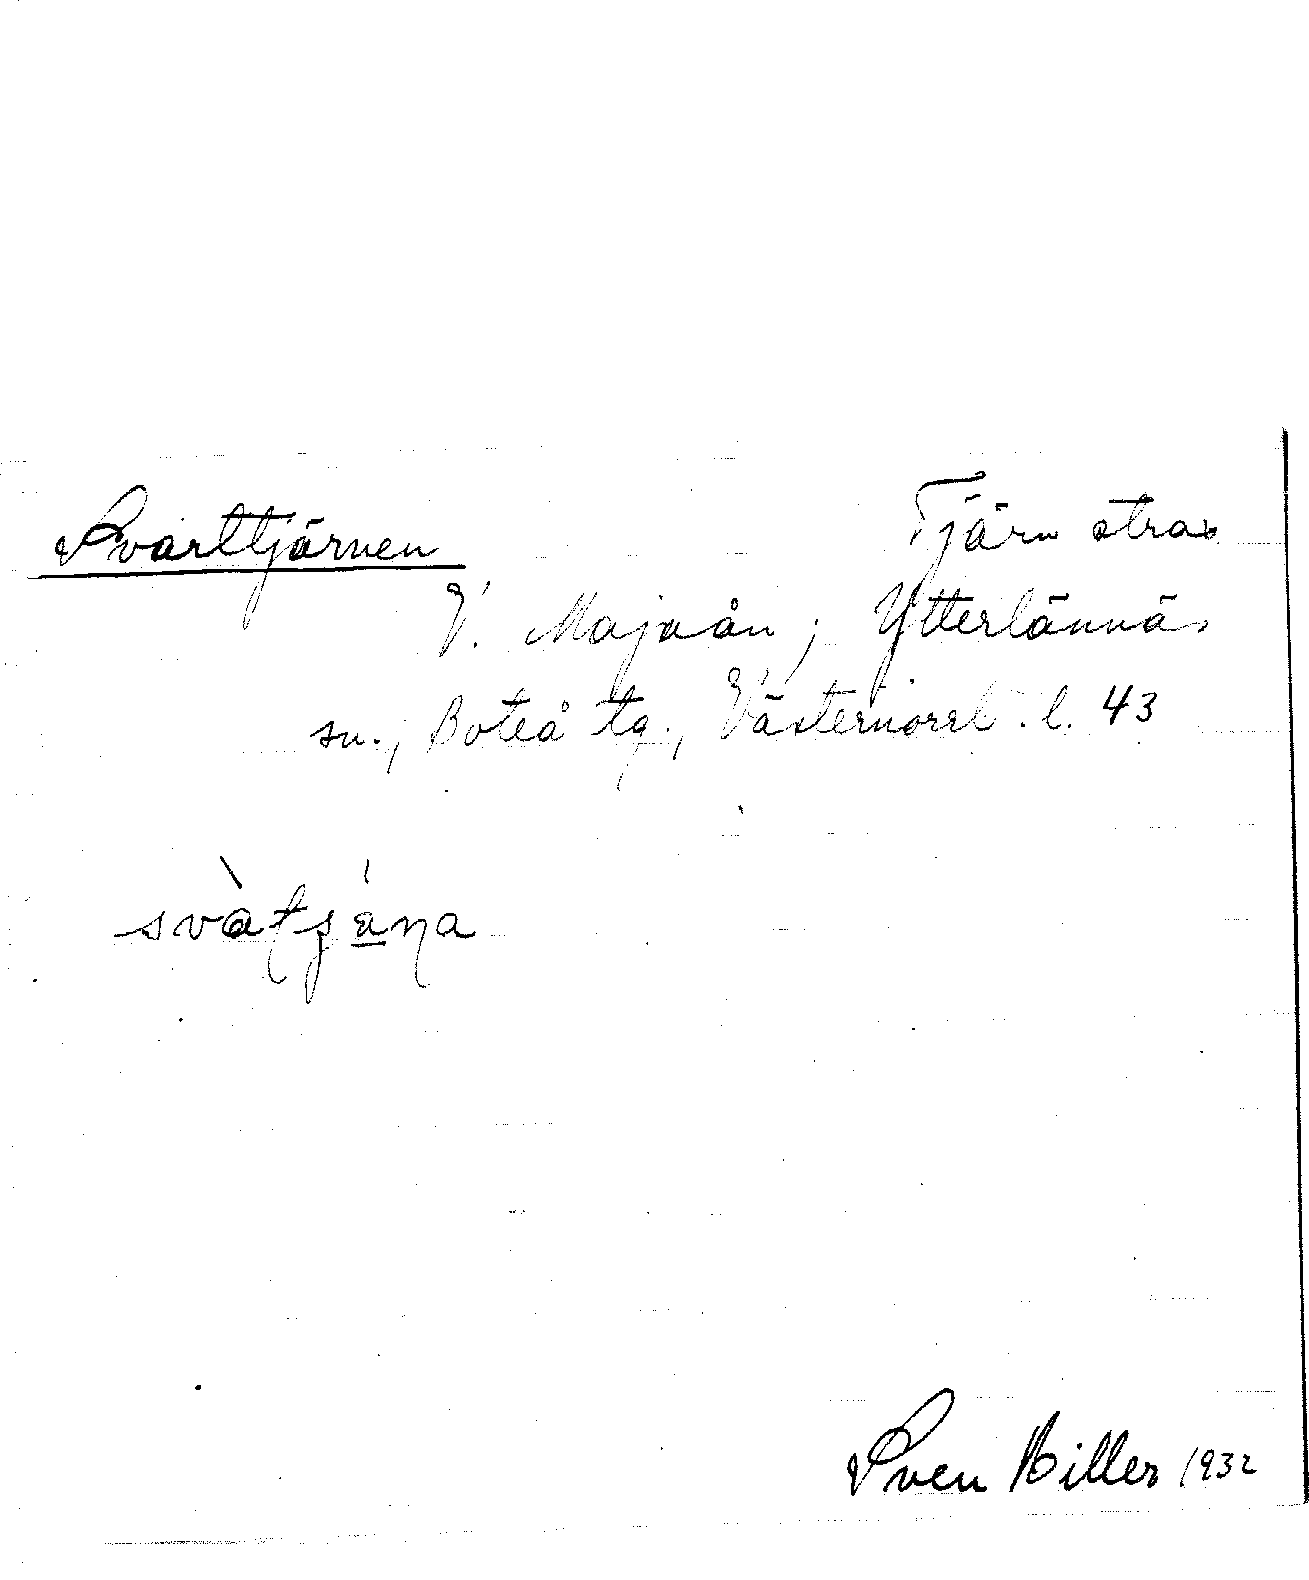 Svarttjärnen Tjärn strax
V. Majaån; Ytterlännäs
sn., Boteå tg., Västernorrl. l. 43
svàtjána
Sven Hiller 1932